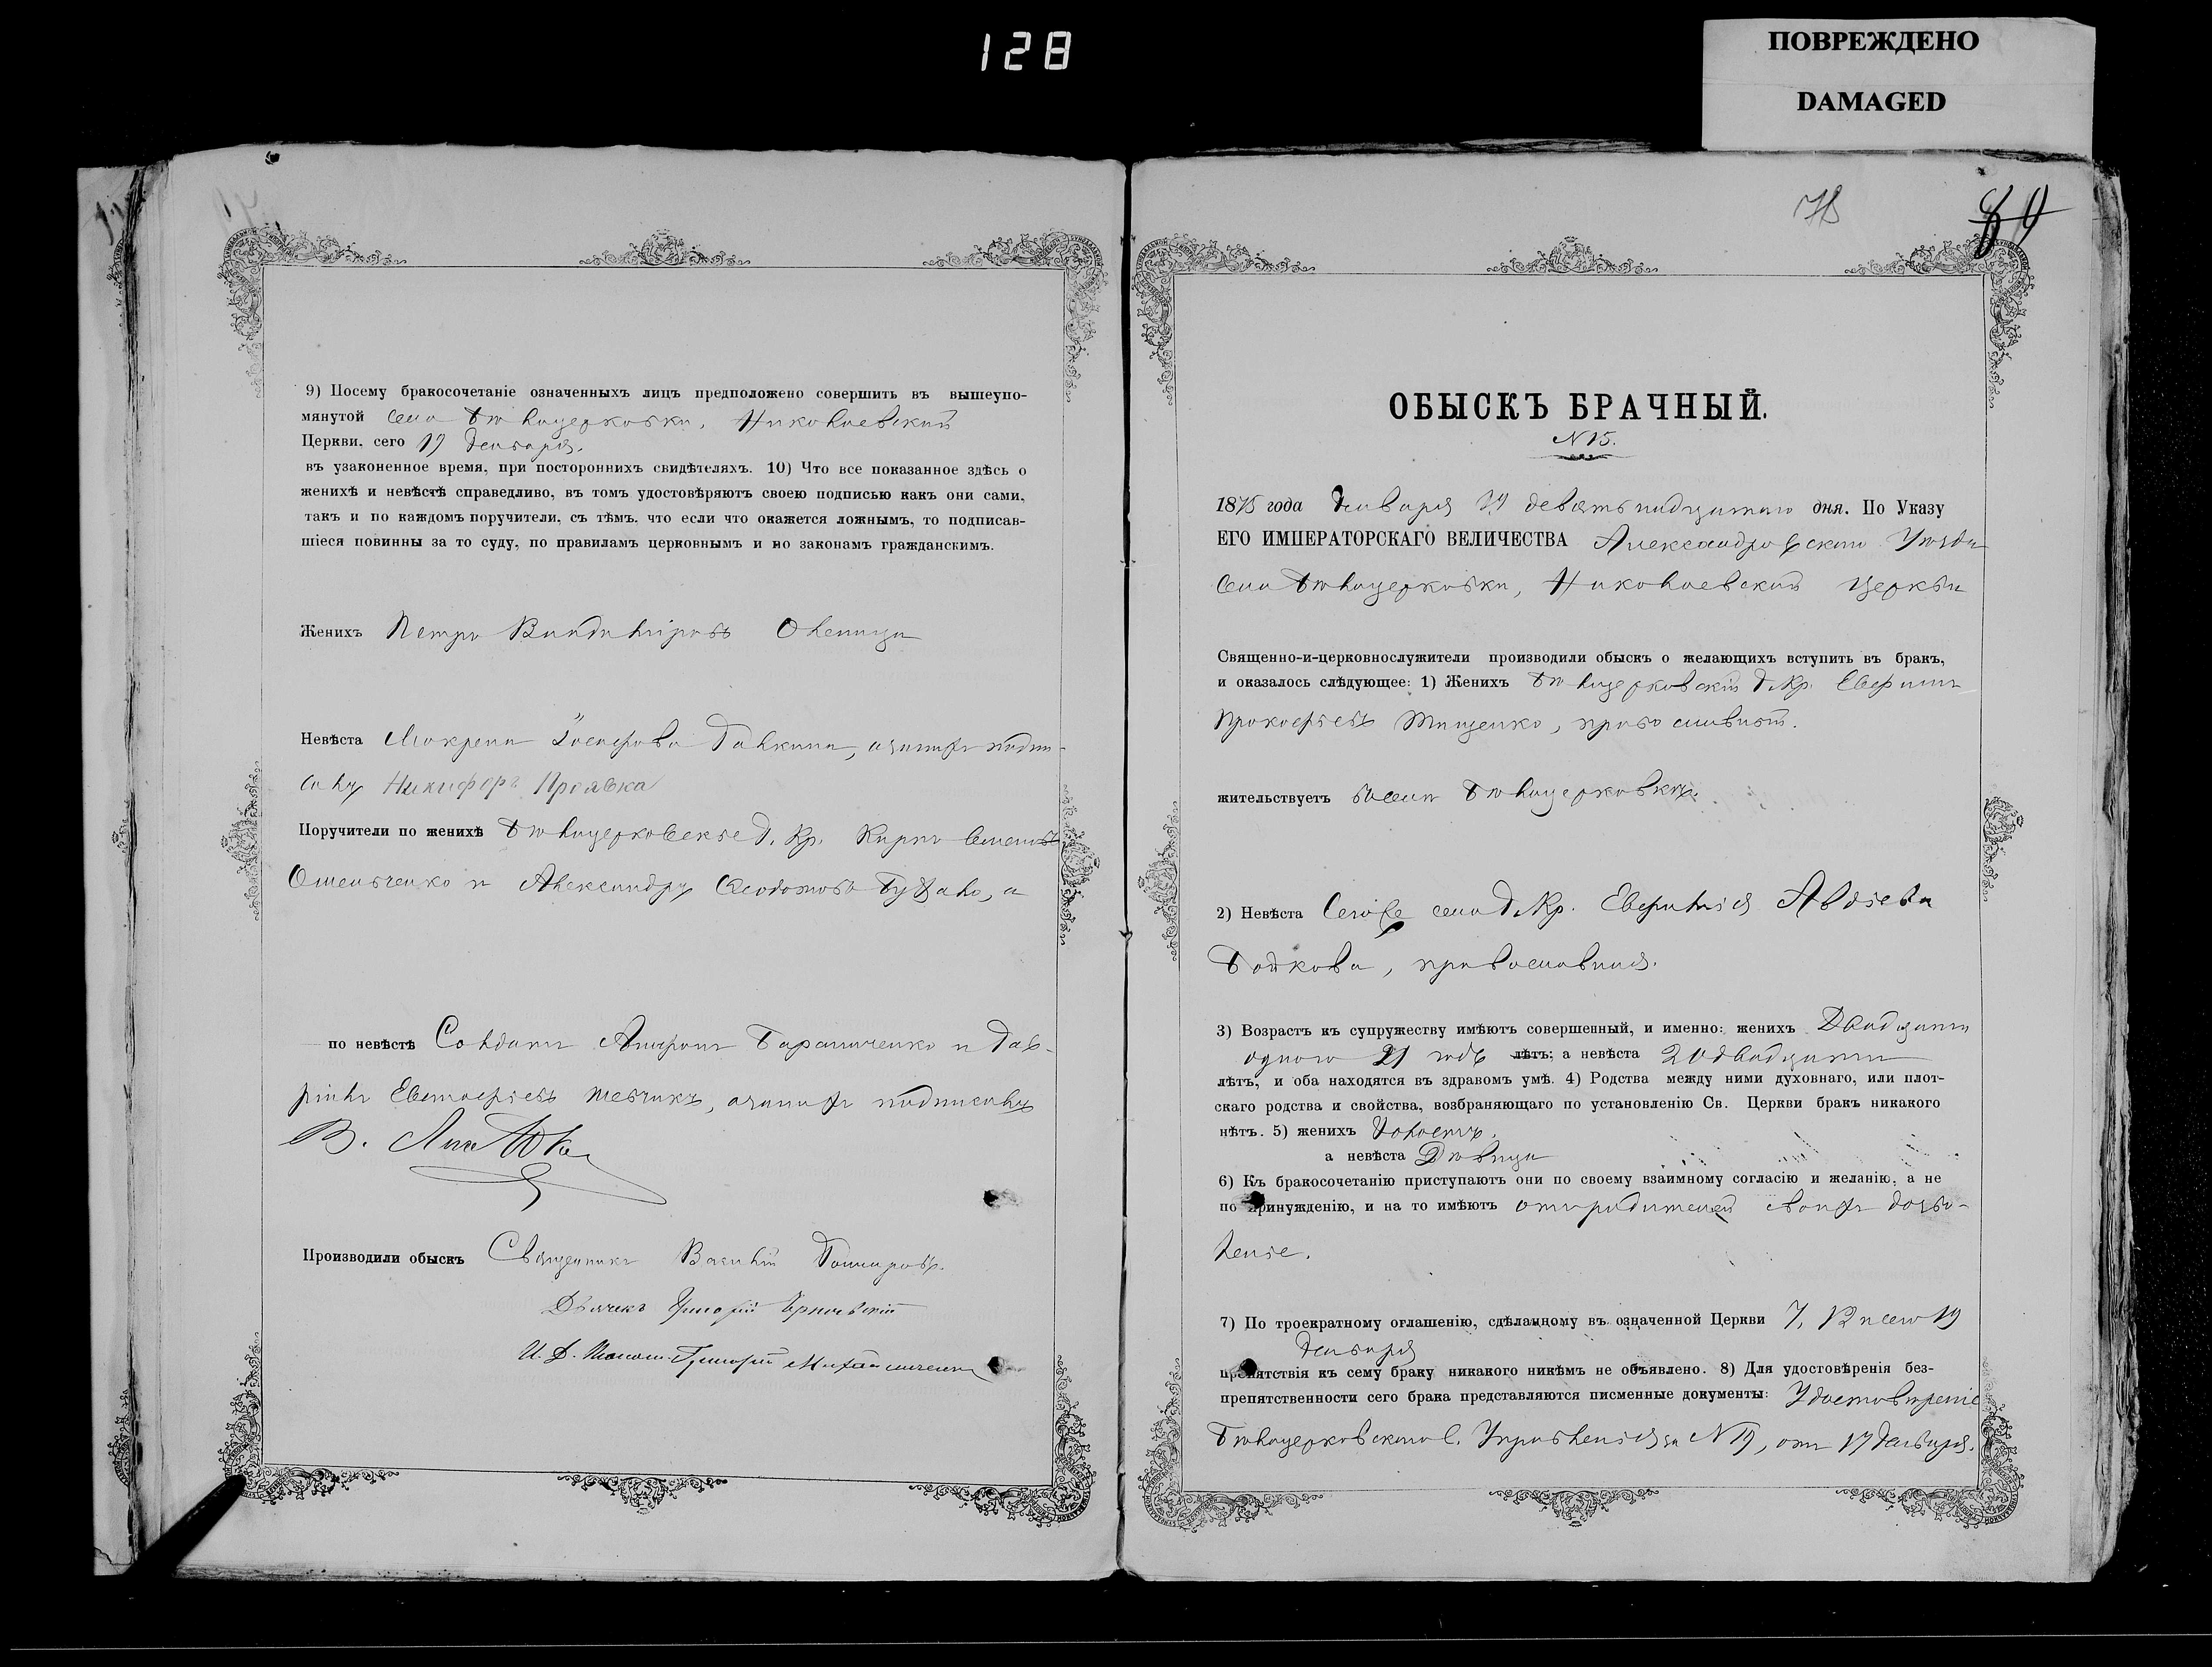 128
ПОВРЕЖДЕНО
DAMAGED
9) Посему бракосочетаніе означенныхъ лицъ предположено совершить въ вышеупо-
мянутой села Бѣлицерковки, Николаевской
Церкви, сего 19 Генваря.
въ узаконенное время, при постороннихъ свидѣтеляхъ. 10) Что все показанное здѣсь о
женихѣ и невѣстѣ справедливо, въ томъ удостовѣряютъ своею подписью какъ они сами,
такъ и по каждомъ поручители, съ тѣмъ, что если что окажется ложнымъ, то подписав-
шіеся повинны за то суду, по правиламъ церковнымъ и по законамъ гражданскимъ.
Женихъ Петръ
Невѣста Іосифова Галкина, а за нихъ подпи-
салъ Никифоръ Проявка
Поручители по женихѣ Бѣлицерковскіе Г. Кр. Карпъ Семеновъ
Омельченко и Александръ Ѳеодотовъ
по невѣстѣ Солдатъ Бараниченко и Гав-
рiилъ Евстафіевъ Шевчикъ, а за нихъ подписалъ
В.
Производили обыскъ Священникъ Василій
Дьячекъ Григорій
И. Д. Понам. Григорій Михайличенко
78
ОБЫСКЪ БРАЧНЫЙ.
N 15.
1875 года Генваря 19 девятьнадцатаго дня. По Указу
ЕГО ИМПЕРАТОРСКАГО ВЕЛИЧЕСТВА Александровскаго Уѣзда
села Бѣлицерковки, Николаевской церкви
Священно-и-церковнослужители производили обыскъ о желающихъ вступить въ бракъ,
и оказалось слѣдующее: 1) Женихъ Бѣлицерковскій Г. Кр. Ефимъ
Прокофіевъ Тищенко, православный.
жительствуетъ въ селѣ Бѣлицерковкѣ.
2) Невѣста Сегоже села Г. Кр. Евфимія Авдіева
Бойкова, православная.
3) Возрастъ къ супружеству имѣютъ совершенный, и именно: женихъ Двадцати
одного 21 года лѣтъ; а невѣста 20 двадцати
лѣтъ, и оба находятся въ здравомъ умѣ. 4) Родства между ними духовнаго, или плот-
скаго родства и свойства, возбраняющаго по установленію Св. Церкви бракъ никакого
нѣтъ. 5) женихъ Холостъ,
а невѣста Дѣвица
6) Къ бракосочетанію приступаютъ они по своему взаимному согласію и желанію, а не
по принужденію, и на то имѣютъ отъ родителей своихъ дозво-
леніе.
7) По троекратному оглашенію, сдѣланному въ означенной Церкви 7, 12 и сего 19
Генваря
препятствія къ сему браку никакого никѣмъ не объявлено. 8) Для удостовѣренія без-
препятственности сего брака представляются писменные документы: Удостовѣреніе
Бѣлицерковскаго С. Управленія за N 19, отъ 17 Генваря.